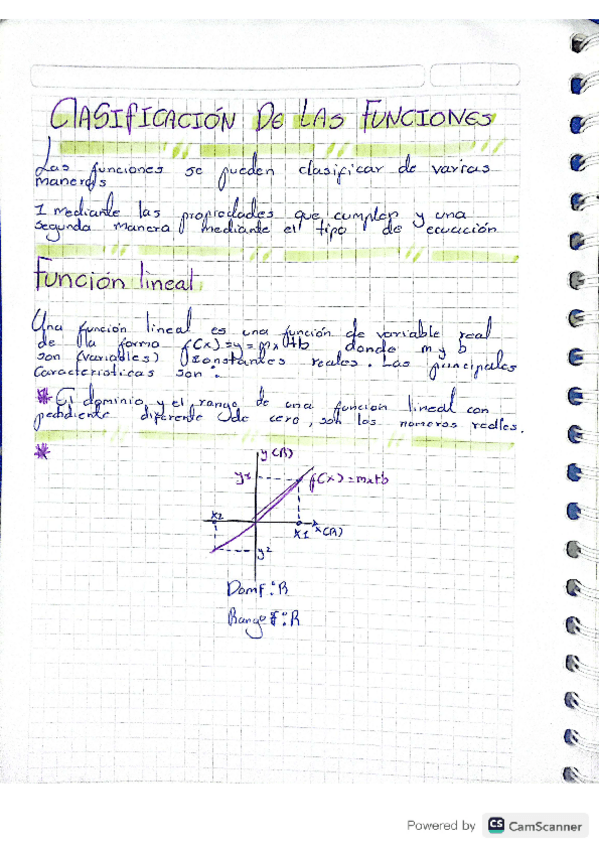 CLASIFICACIÓN DE LAS FUNCIONES
Las funciones se pueden clasificar de varias
maneras
1 mediante las propiedades que cumplen y una
segunda manera mediante el tipo de ecuación
Función lineal
Una función lineal es una función de variable real
de la forma f(x)=y=mx+b donde m y b
son (variables) constantes reales. Las principales
Caracteristicas son:
* El dominio y el rango de una funcion lineal con
pendiente diferente de cero, son los numeros reales.
*
y(R)
f(x)=mx+b
x2
x1 x(R)
y2
Domf: R
Rango f: R
Powered by CS CamScanner